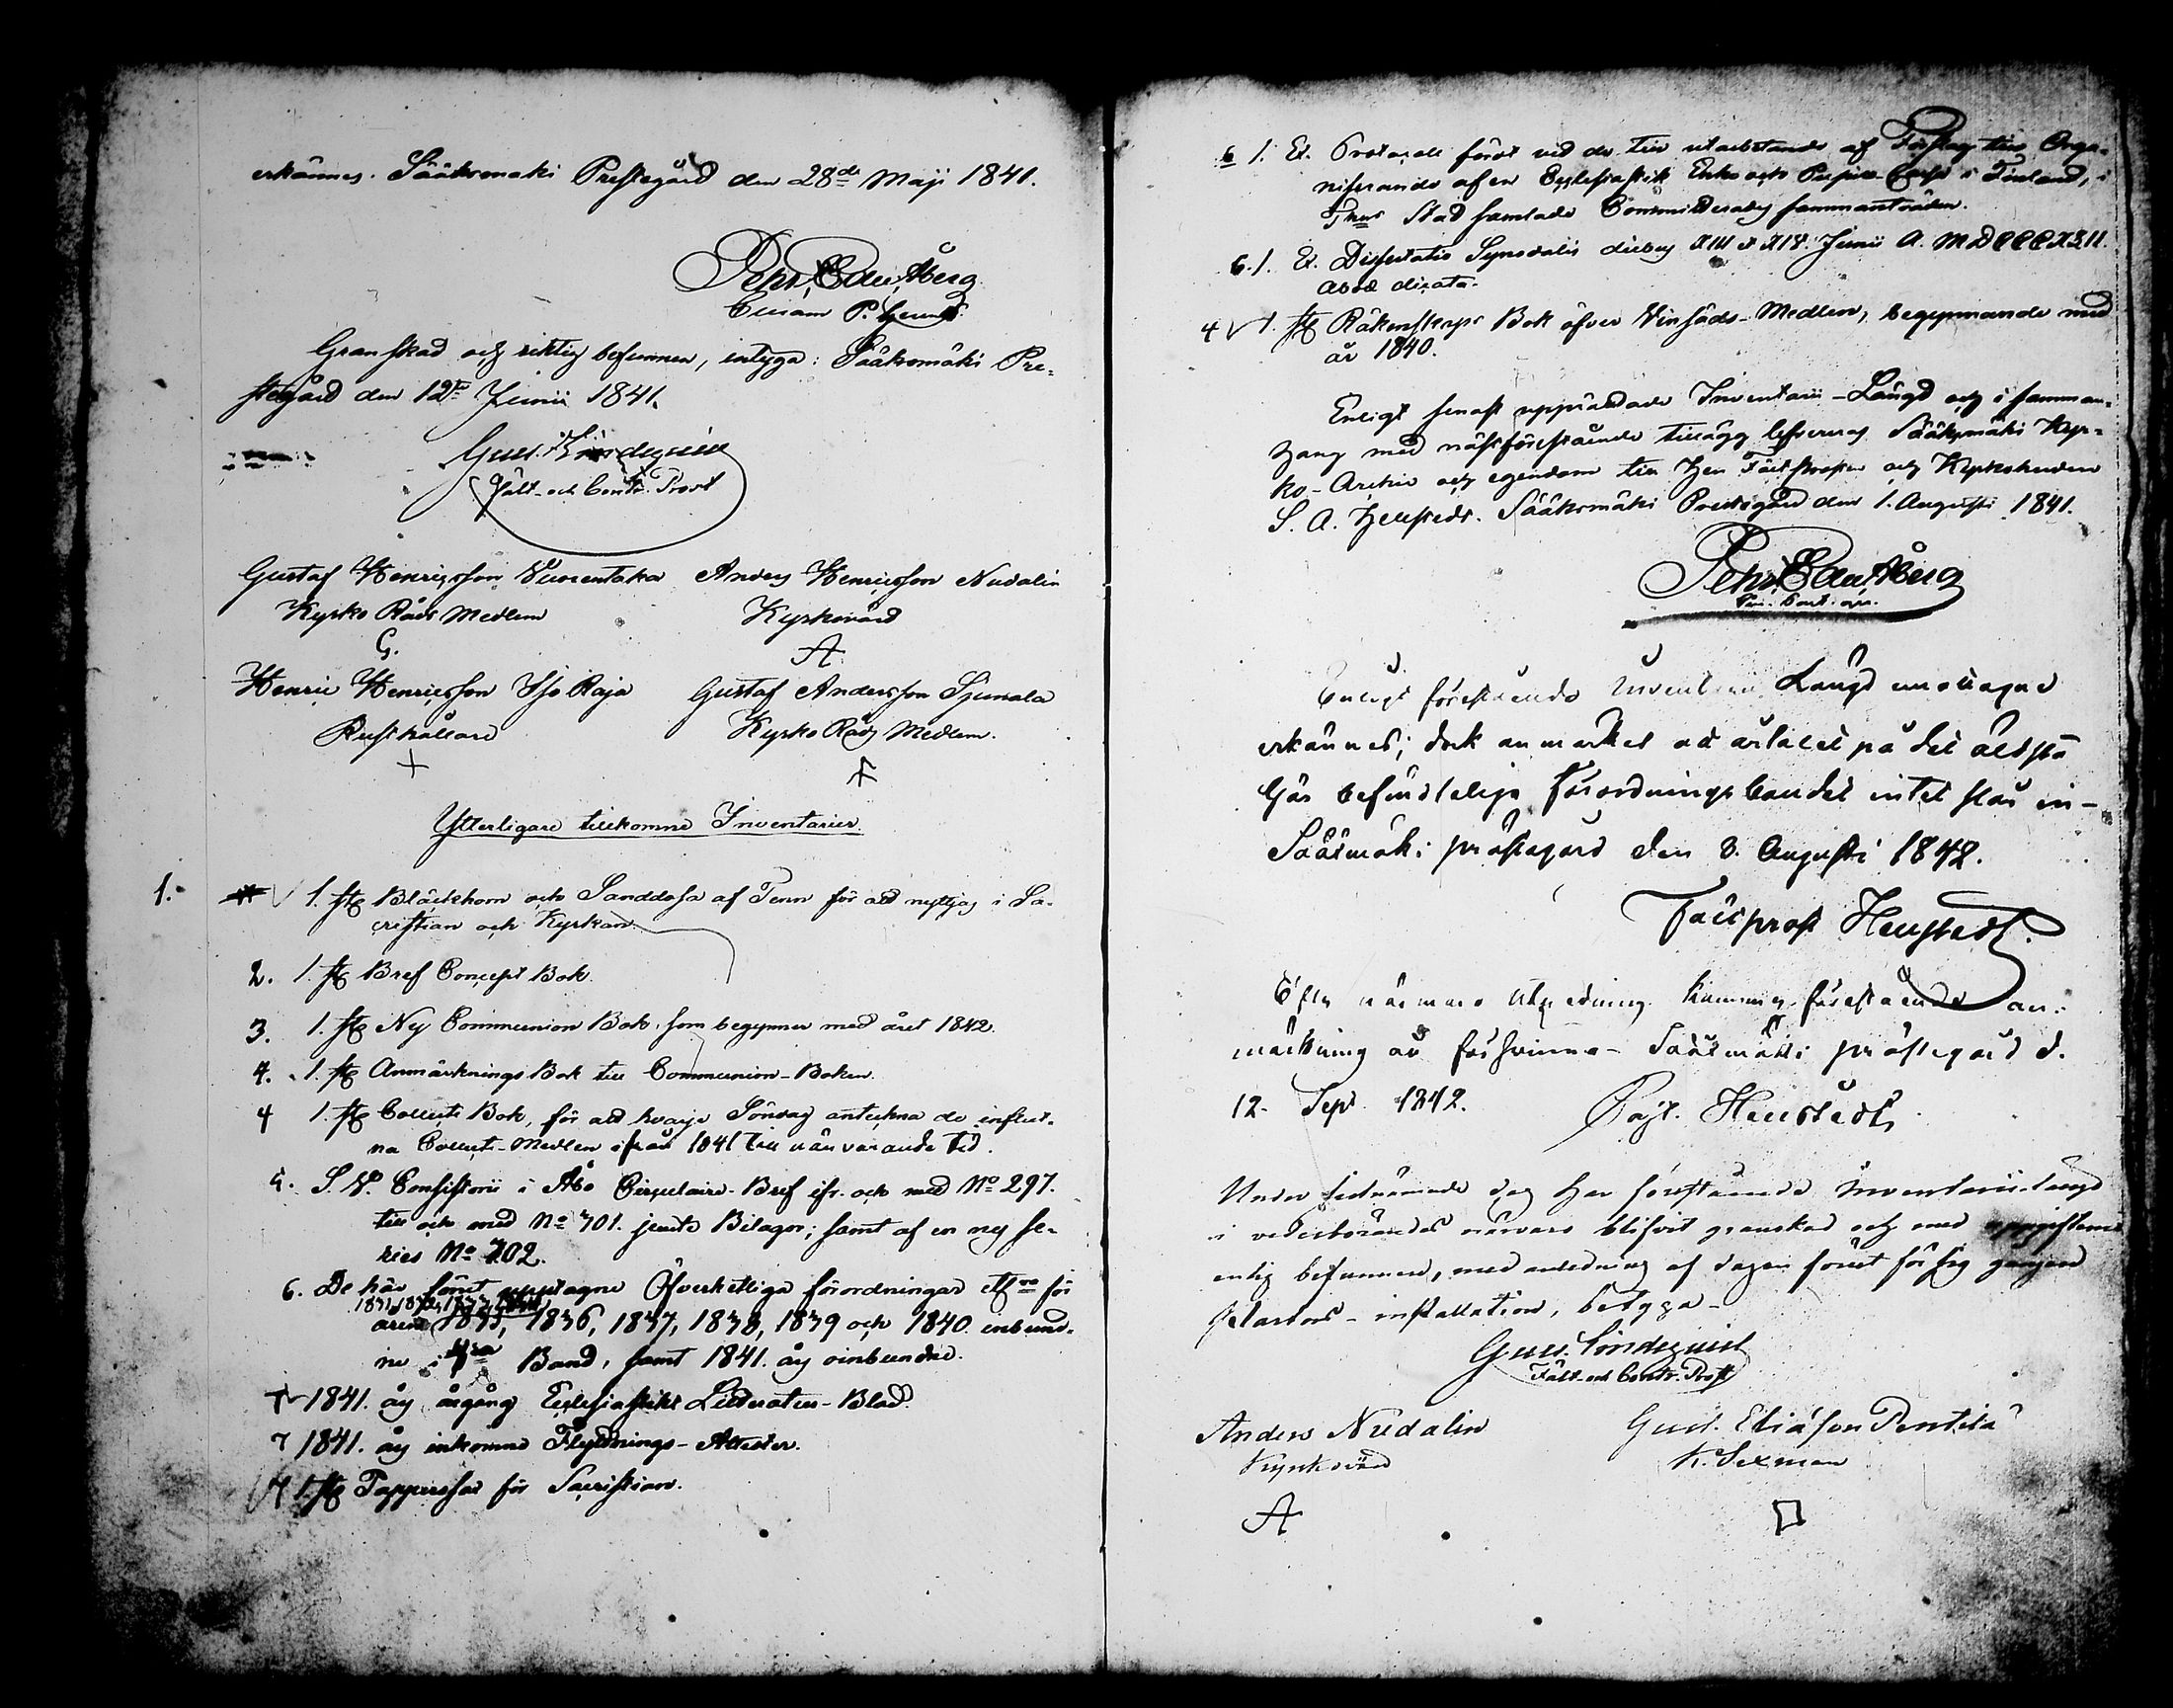 erkännes. Sääksmäki Prestegård den 28de Maji 1841.
Pehr Edv. Åberg
P.
Granskad och riktig befunnen, intyga: Sääksmäki Pre-
stegård den 12te Junii 1841.
Gust. Lindequist
Fält- och Contr. Prost
Gustaf Henricsson Vuorentaka Anders Henricsson Nudalin
Kyrko Råds Medlem Kyrkovärd
G. A
Henric Henricsson Iso Raja Gustaf Andersson
Rusthållare Kyrko Råds Medlem.
Ytterligare tillkomne Inventarier.
1. 1. st Bläckhorn och Sanddosa af Tenn för att nyttjas i Sa-
cristian och Kyrkan.
2. 1. st Bref Concept Bok.
3. 1. st Ny Communion Bok, som begynner med året 1842.
4. 1. st Anmärknings Bok till Communion-Boken.
4 1. st Collect Bok, för att hvarje Söndag anteckna de influt-
na Collect-Medlen ifrån 1841 till närvarande tid.
5. S. V. Consistorii i Åbo Circulaire-Bref ifr. och med No 297.
till och med No 701. jemte Bilagor; samt af en ny se-
ries No 702.
6. De här förut upptagne Öfverhetliga förordningar för
1831, 1832, 1833, 1834
åren 1835, 1836, 1837, 1838, 1839 och 1840 inbund-
ne i Band, samt 1841. års oinbundne.
1841. års årgång Ecclesiastikt Litteratur-Blad.
7 1841. års inkomne Flyttnings-Attester.
1. st Papperssax för Sacristian.
6 1. Ex. Protocoll fördt vid de till utarbetande af Förslag till Orga-
niserande af en Ecclesiastik Enke och Pupill-Cassa i Finland, i
Stad samlade Committerades sammanträden.
6. 1. Ex. Dissertatio Synodalis diebus XIII et XIV. Junii A. MDCCCXLII.
Aboæ
4 1. st Räkenskaps Bok öfver Vinsäds-Medlen, begynnande med
år 1840.
Enligt senast upprättade Inventarii-Längd och i samman-
hang med nästförestående tillägg lefvereras Sääksmäki Kyr-
ko-Archiv och egendom till Herr Fältprosten och Kyrkoherden
S. A. Hellstedt. Sääksmäki Prestegård den 1. Augusti 1841.
Pehr Edv. Åberg
Enligt förestående Inventarii Längd emottagne
erkännes; dock anmärkes att årtalet på det äldsta
här befindtelige förordningsbandet intet slår in-
Sääxmäki prästegård den 3. Augusti 1842.
Fältprost Hellstedt.
Efter närmare utredning kommer förestående an-
märkning att försvinna- Sääxmäki prästegård d.
12. Sept. 1842. Hellstedt
Under sistnämnde dag har förestående Inventarii-längd
i vederbörandes närvaro blifvit granskad och med uppgifterne
enlig befunnen, med anledning af dagen förut för sig gången
Pastors-installation, betyga-
Gust. Lindequist
Fält- och Contr. Prost
Anders Nudalin Gust. Eliasson Pentila
Kyrkovärd K. Sexman
A